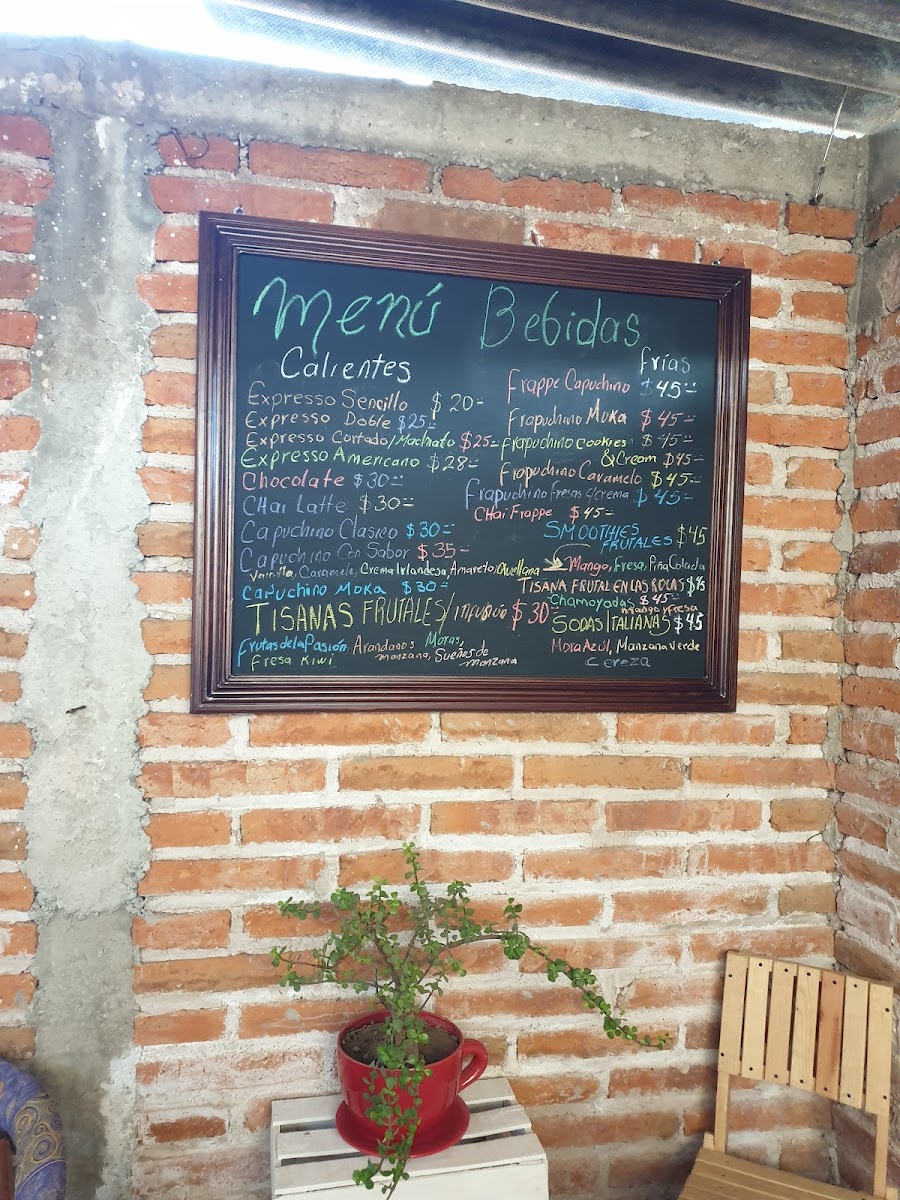 Menú Bebidas
Calientes
Expresso Sencillo $20=
Expresso Doble $25=
Expresso Cortado/Machiato $25=
Expresso Americano $28=
Chocolate $30=
CHai Latte $30=
Capuchino Clasico $30=
Capuchino Con Sabor $35=
Vainilla, Caramelo, Crema Irlandesa, Amareto, Avellana
Capuchino Moka $30=
TISANAS FRUTALES/ $30=
Frutas de la Pasión, Arandanos Moras,
Fresa Kiwi manzana, Sueños de
manzana
frías
Frappe Capuchino $45=
Frapuchino Moka $45=
Frapuchino cookies $45=
& Cream $45=
Frapuchino Caramelo $45=
Frapuchino Fresas c/crema $45=
CHai Frappe $45=
SMOOTHIES
FRUTALES $45
Mango, Fresa, Piña Colada
TISANA FRUTAL EN LAS ROCAS $45
Chamoyadas $45=
mango y Fresa
SODAS ITALIANAS $45
Mora Azúl, Manzana Verde
Cereza